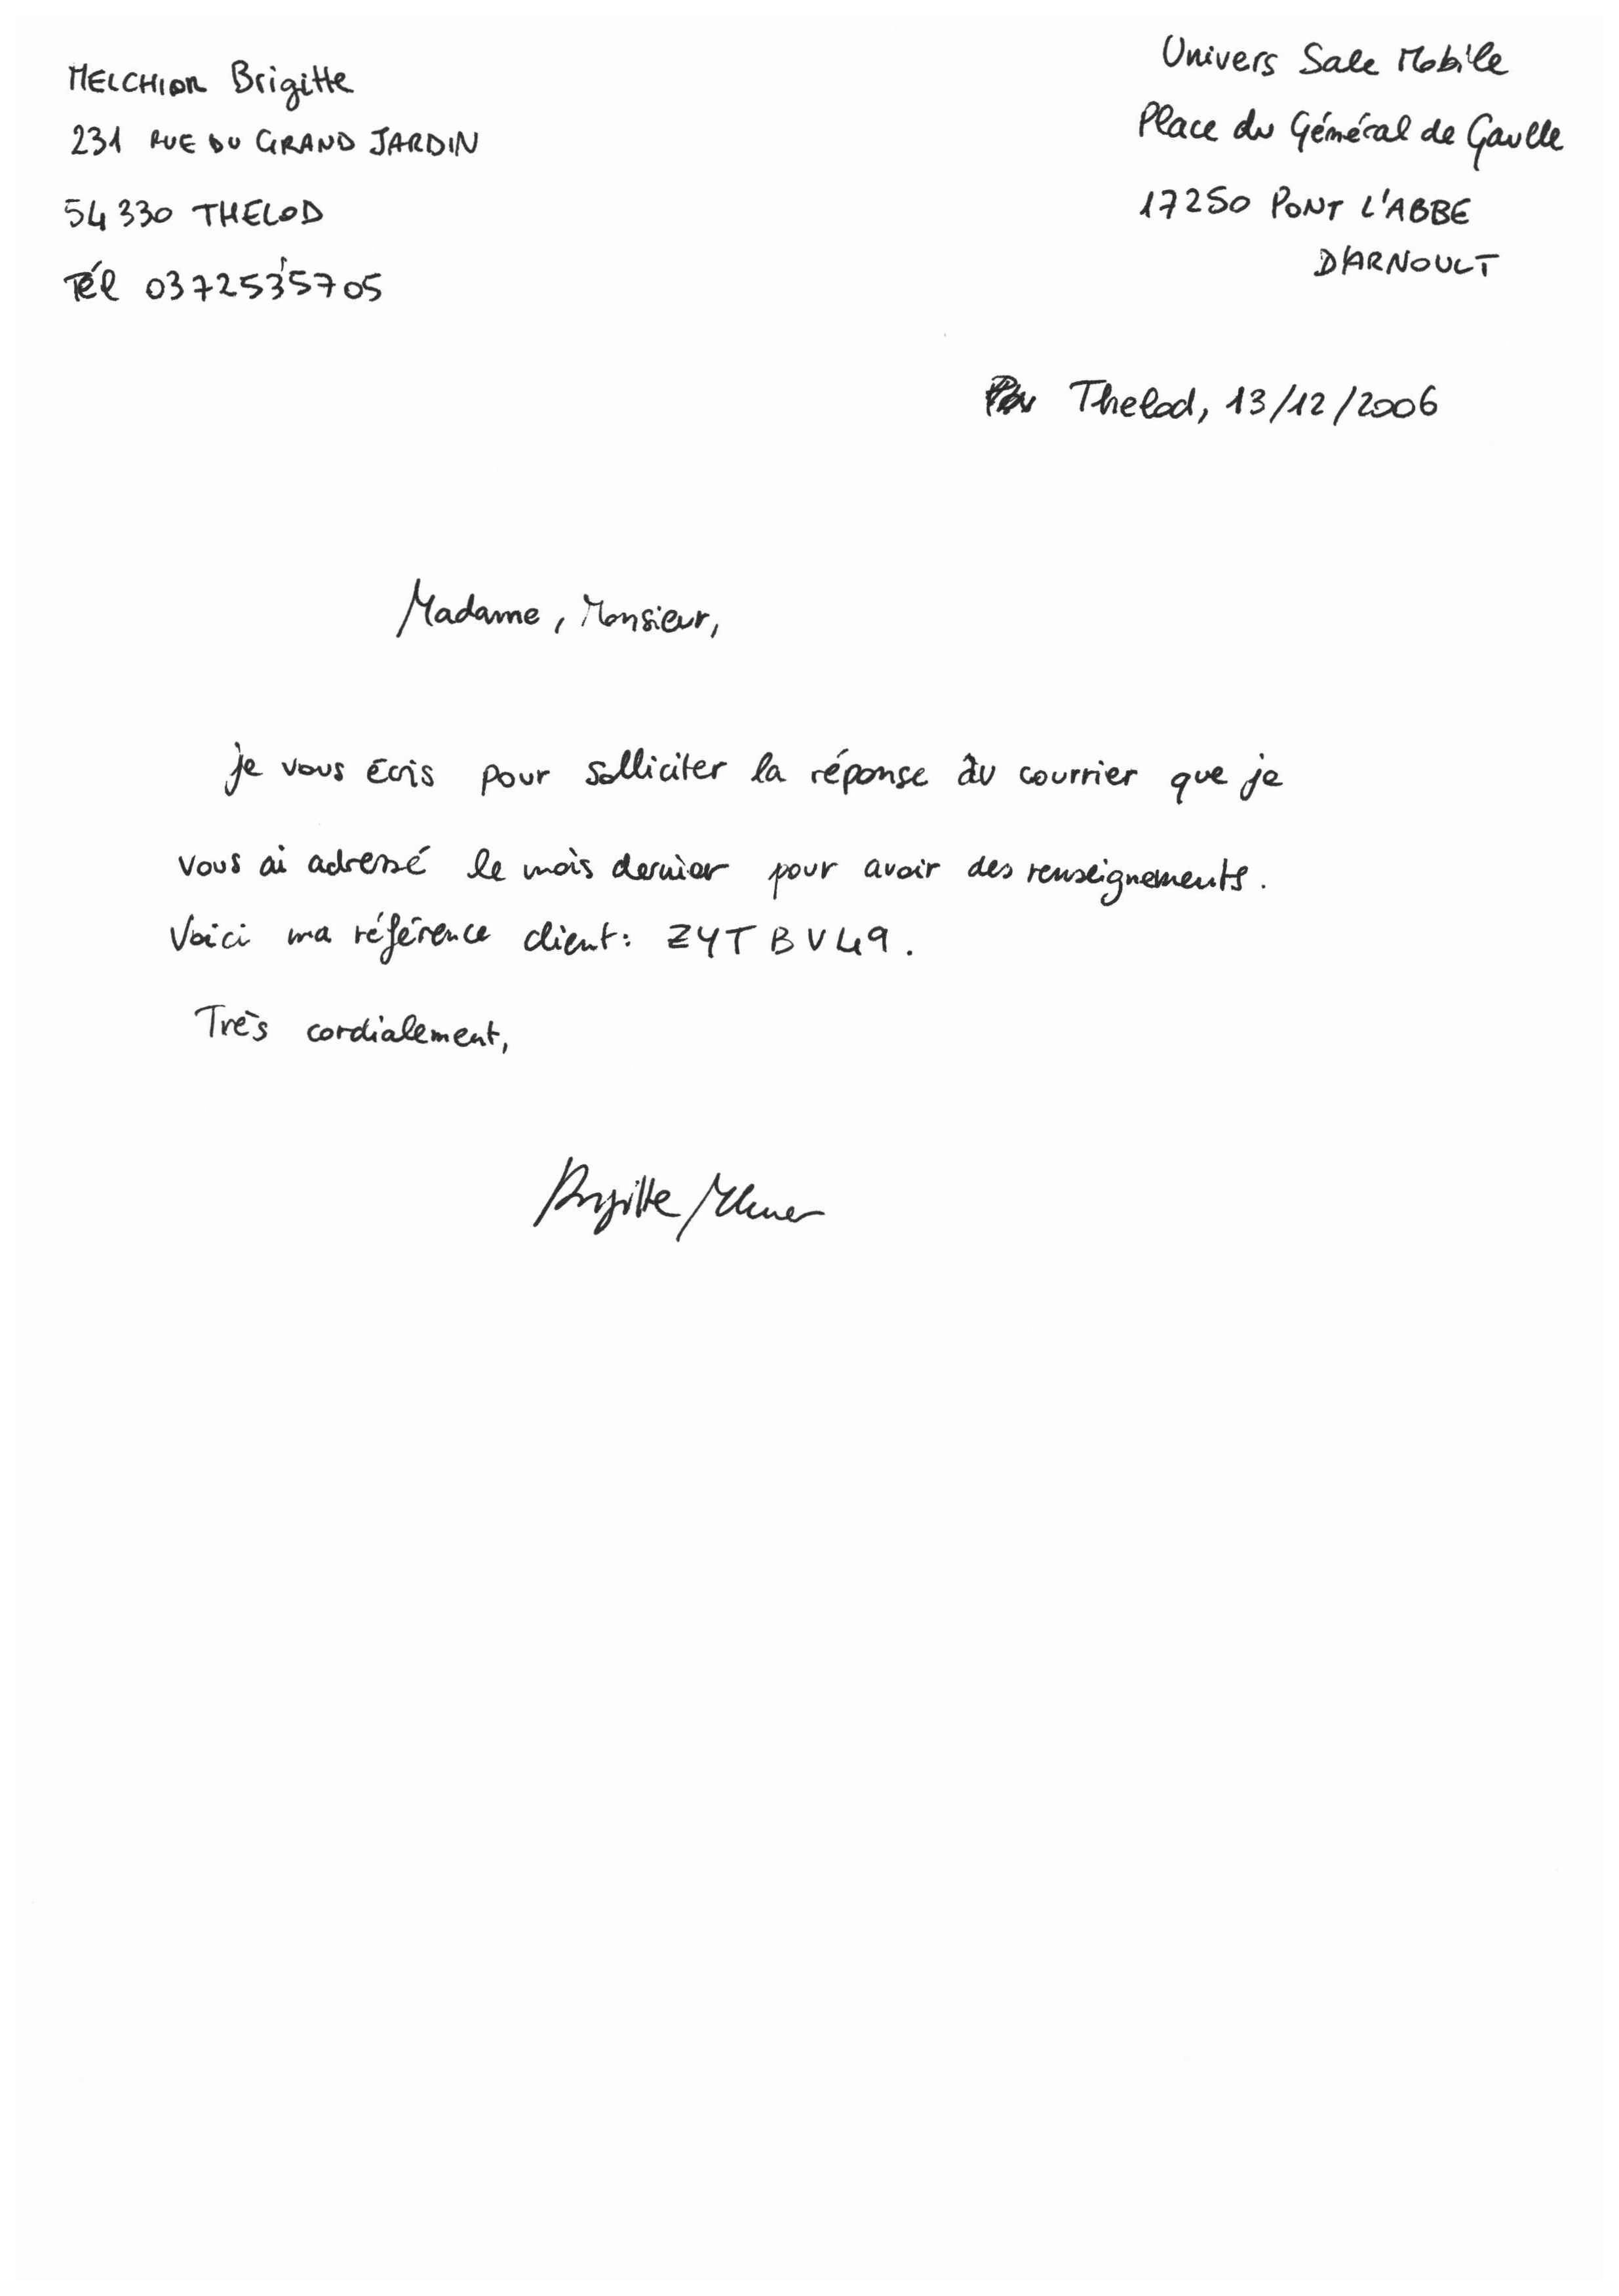 MELCHIOR Brigitte
231 RUE DU GRAND JARDIN
54 330 THELOD
Tél 0372535705
Univers Sale Mobile
Place du Général de Gaulle
17250 PONT L'ABBE
D'ARNOULT
Thelod, 13/12/2006
Madame, Monsieur,
je vous écris pour solliciter la réponse du courrier que je
vous ai adressé le mois dernier pour avoir des renseignements.
Voici ma référence client: ZYTBV49.
Très cordialement,
Brigitte